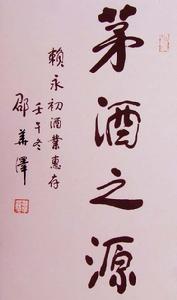 茅酒之源
賴永初酒業惠存
壬午冬
邵華澤